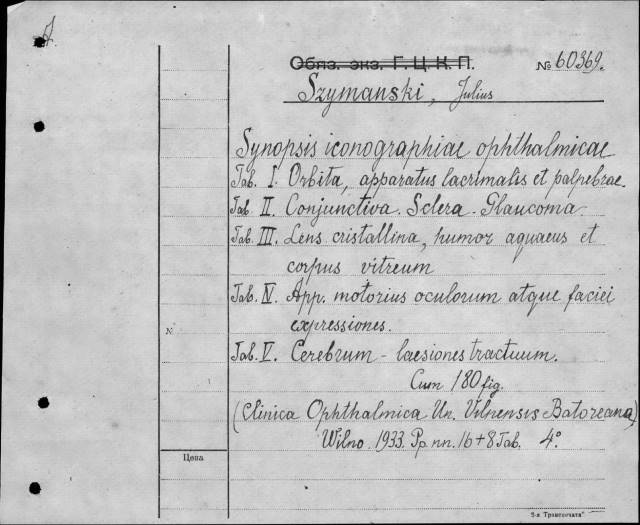 Обяз. экз. Г. Ц. К. П. № 60369.
Szymanski, Julius
Synopsis iconographiae ophthalmicae
Tab. I. Orbita, apparatus lacrimalis et palpebrae.
Tab. II. Conjunctiva. Sclera. Glaucoma.
Tab. III. Lens cristallina, humor aquaeus et
corpus vitreum
Tab. IV. App. motorius oculorum atque faciei
expressiones.
N
Tab. V. Cerebrum - laesiones tractuum.
Cum 180 fig.
(Clinica Ophthalmica Un. Vilnensis Batoreana)
Wilno. 1933. Pp. nn. 16+8 Tab. 4°.
Цена
2-я Транспечать"